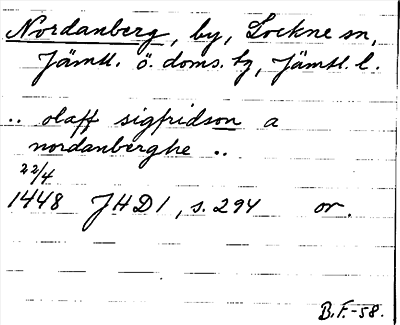 Nordanberg, by, Lockne sn,
Jämtl. ö. doms. tg, Jämtl. l.
.. olaff sigfridson a
nordanberghe ..
22/4
1448 JHD 1, s. 294 or.
B.F.-58.